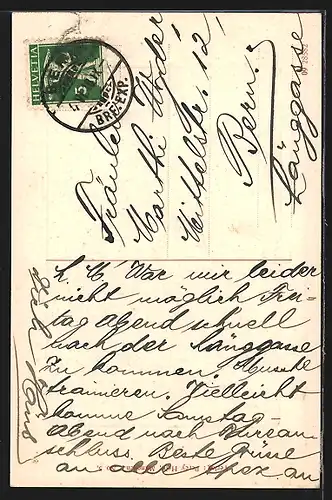 HELVETIA
5
BRF. EXP.
Fräulein
Marthi
Mittelstr. 12
Bern.
Länggasse
L. M. War mir leider
nicht möglich Frei-
tag Abend schnell
nach der Länggasse
zu kommen. Musste
trainieren. Vielleicht
komme Samstag-
Abend nach Bureau-
schluss. Beste Grüsse
an an
Hans